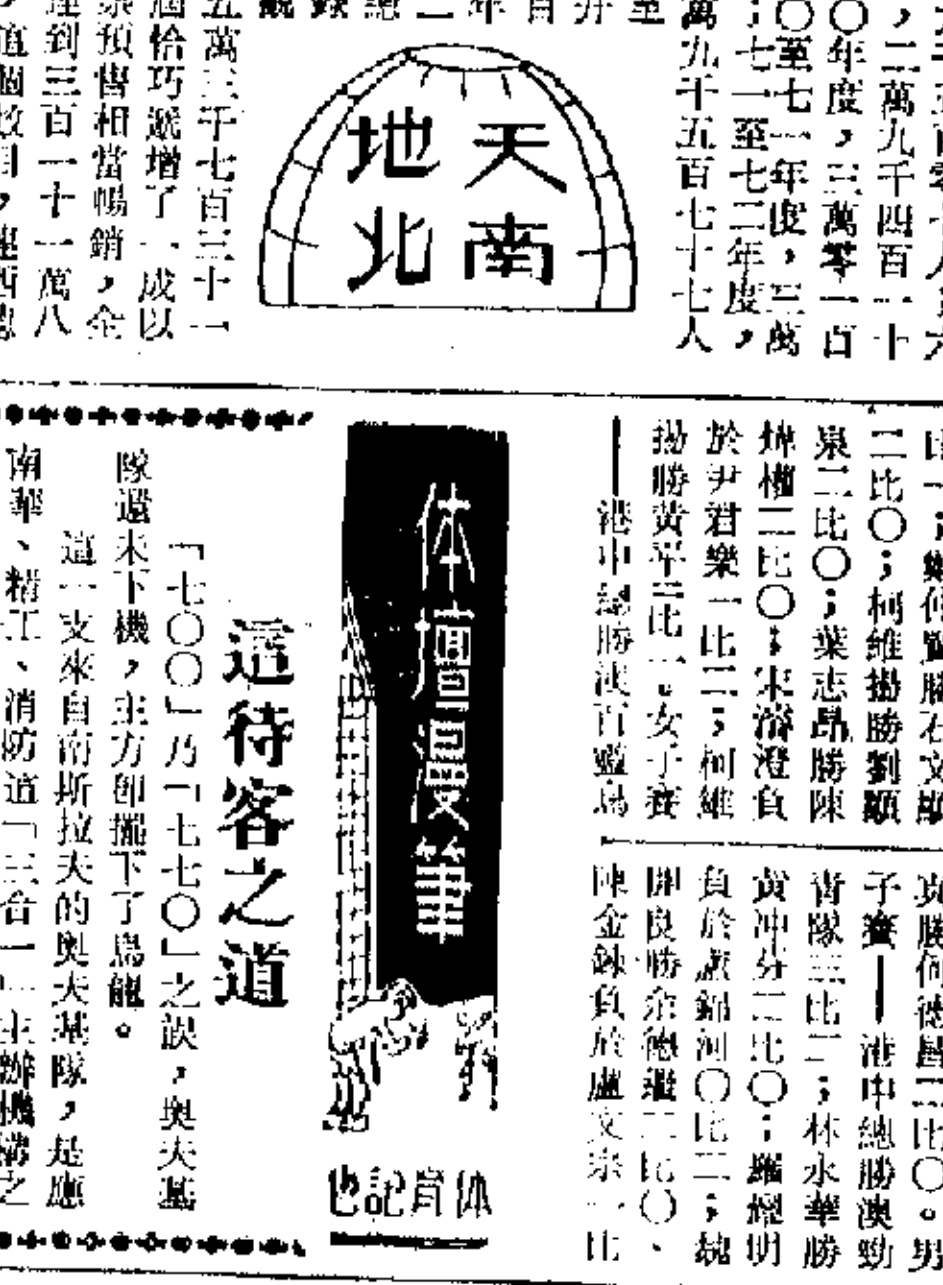 ，二萬九千四百一十
〇年度，三萬零一百
〇至七一年度，三萬
；七一至七二年度，
萬九千五百七十七人
天南
地北
五萬三千七百三十一
恰巧遞增了一成以
預售相當暢銷，全
到三百一十一萬八
二比〇；柯維揚勝劉顯
泉二比〇；葉志昂勝陳
煒權二比〇；宋濬澄負
於尹君樂一比二；柯維
揚勝黃平二比一。女子賽
——港中總勝澳百靈鳥
真勝何德昌二比〇。男
子賽——港中總勝澳勁
青隊三比二；林永華勝
黃冲芬二比〇；羅燿明
負於盧錦河〇比二；魏
開良勝余德繼二比〇、
陳金錬負於盧文宗一比
体壇漫筆
体育記也
這待客之道
「七〇〇」乃「七七〇」之誤，奧夫基
隊還未下機，主方卽擺下了烏龍。
這一支來自南斯拉夫的奧夫基隊，是應
南華、精工、消防這「三合一」主辦機構之